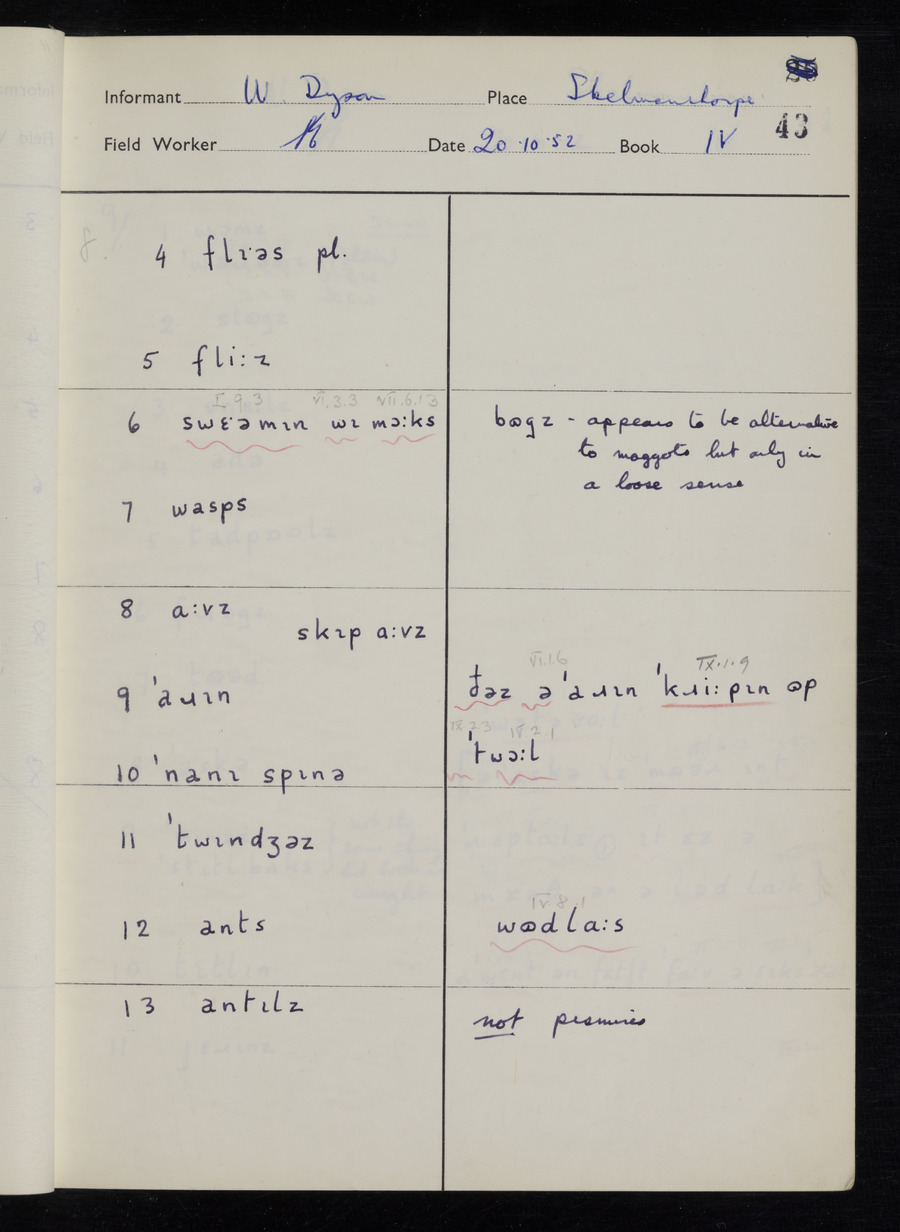 Informant W. Dyson Place Skelmanthorpe
43
Field Worker Date 20.10.52 Book IV
4 flɪ·əs pl.
5 fli:z
I 9.3 VI.3.3 VII.6.13
6 swɛ·əmɪn wɪ mɔ:ks
bɷgz - appears to be alternative
to maggots but only in
a loose sense
7 wasps
8 a:vz
skɪp a:vz
VI.1.6 IX.1.9
9 ˈaɹɪn
ðəz əˈaɹɪn ˈkɹi:pɪn ɷp
IX 2 3 IV 2.1
ˈtwɔ:l
10 ˈnanɪ spɪnə
11 ˈtwɪndʒəz
IV.8.1
12 ants
wɷdla:s
13 antɪlz
not pismires